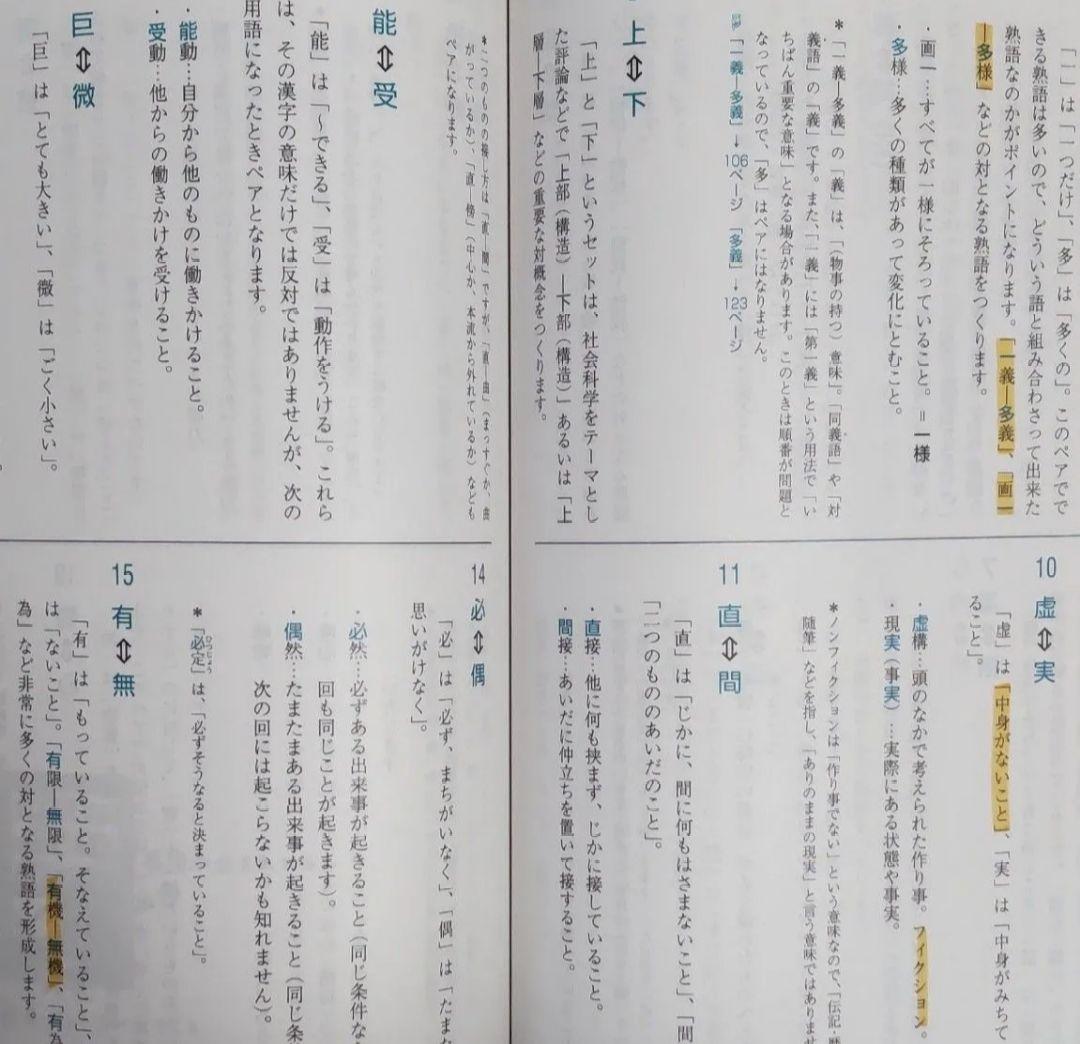 「一」は「一つだけ」、「多」は「多くの」。このペアでで
きる熟語は多いので、どういう語と組み合わさって出来た
熟語なのかがポイントになります。「一義―多義」、「画一
―多様」などの対となる熟語をつくります。
・画一…すべてが一様にそろっていること。＝一様
・多様…多くの種類があって変化にとむこと。
＊「一義―多義」の「義」は、「(物事の持つ)意味」。「同義語」や「対
義語」の「義」です。また、「一義」には「第一義」という用法で「い
ちばん重要な意味」となる場合があります。このときは順番が問題と
なっているので、「多」はペアにはなりません。
「一義―多義」→106ページ 「多義」→123ページ
上⇔下
「上」と「下」というセットは、社会科学をテーマとし
た評論などで「上部(構造)―下部(構造)」あるいは「上
層―下層」などの重要な対概念をつくります。
10 虚⇔実
「虚」は「中身がないこと」、「実」は「中身がみちて
ること」。
・虚構…頭のなかで考えられた作り事。フィクション。
・現実(事実)…実際にある状態や事実。
＊ノンフィクションは「作り事でない」という意味なので、「伝記・歴
随筆」などを指し、「ありのままの現実」と言う意味ではありませ
11 直⇔間
「直」は「じかに、間に何もはさまないこと」、「間
「二つのもののあいだのこと」。
・直接…他に何も挟まず、じかに接していること。
・間接…あいだに仲立ちを置いて接すること。
＊二つのものの接し方は「直―間」ですが、「直―曲」(まっすぐか、曲
がっているか)、「直―傍」(中心か、本流から外れているか)なども
ペアになります。
能⇔受
「能」は「〜できる」、「受」は「動作をうける」。これら
は、その漢字の意味だけでは反対ではありませんが、次の
用語になったときペアとなります。
・能動…自分から他のものに働きかけること。
・受動…他からの働きかけを受けること。
巨⇔微
「巨」は「とても大きい」、「微」は「ごく小さい」。
14 必⇔偶
「必」は「必ず、まちがいなく」、「偶」は「たまた
思いがけなく」。
・必然…必ずある出来事が起きること(同じ条件な
回も同じことが起きます)。
・偶然…たまたまある出来事が起きること(同じ条
次の回には起こらないかも知れません)。
＊「必定」は、「必ずそうなると決まっていること」。
ひつじょう
15 有⇔無
「有」は「もっていること。そなえていること」、
は「ないこと」。「有限―無限」、「有機―無機」、「有為
為」など非常に多くの対となる熟語を形成します。